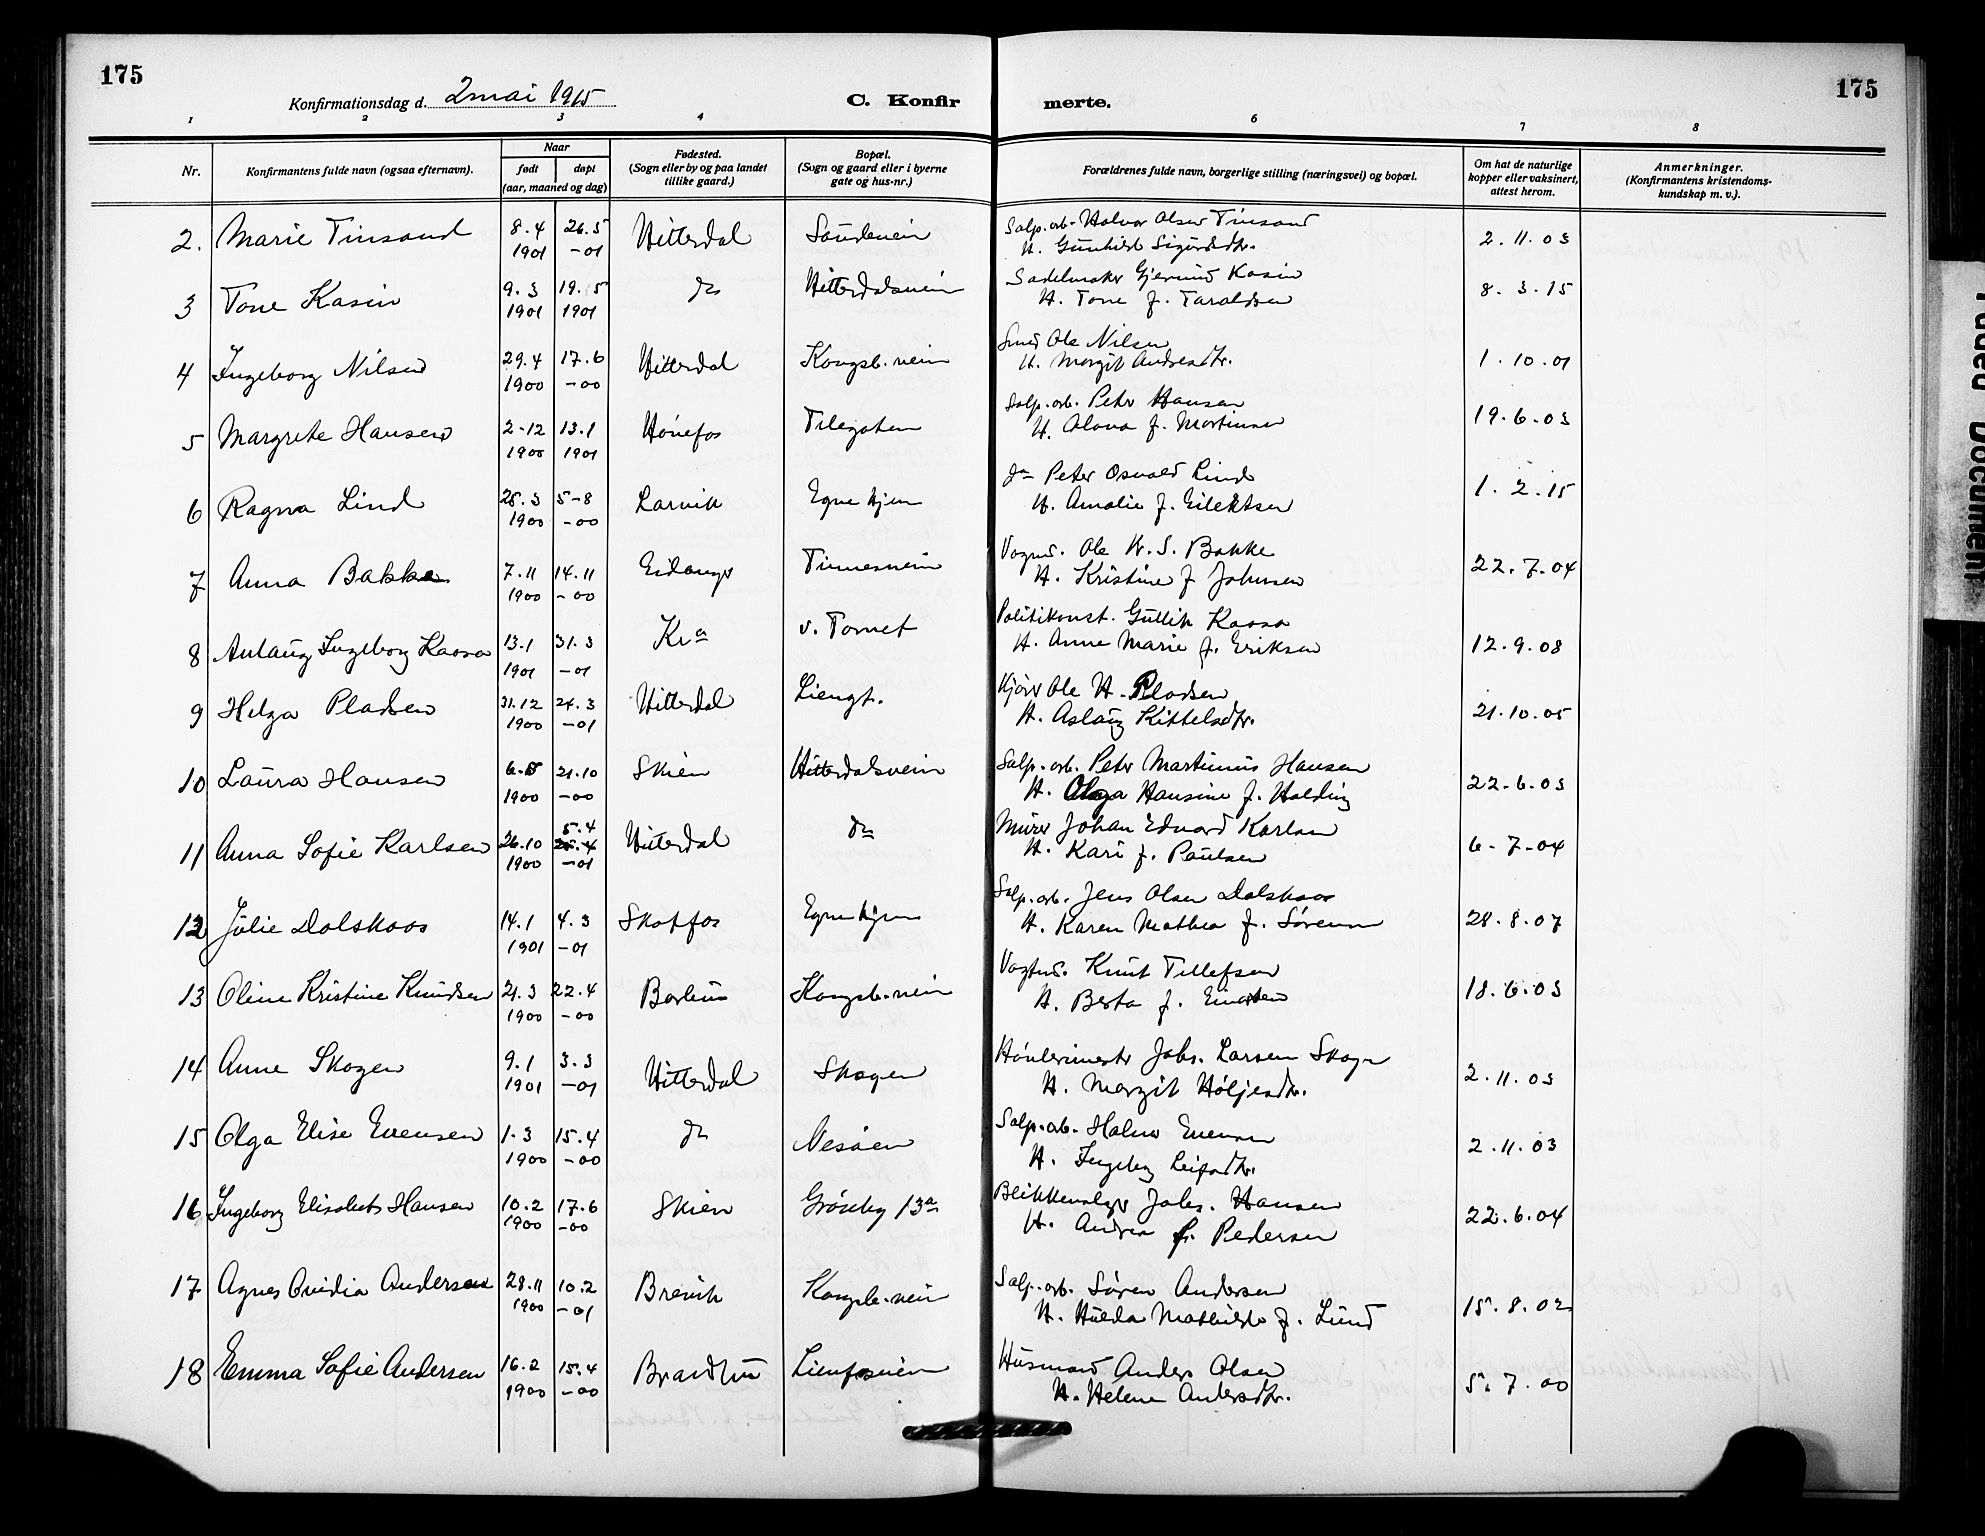 175
Konfirmationsdag d. 2 mai 1915
C. Konfir
merte.
175
1 2 3 4 5 6 7 8
Nr.
Konfirmantens fulde navn (ogsaa efternavn).
Naar
født døpt
(aar, maaned og dag)
Fødested.
(Sogn eller by og paa landet
tillike gaard.)
Bopæl.
(Sogn og gaard eller i byerne
gate og hus-nr.)
Forældrenes fulde navn, borgerlige stilling (næringsvei) og bopæl.
Om hat de naturlige
kopper eller vaksinert,
attest herom.
Anmerkninger.
(Konfirmantens kristendoms-
kundskap m. v.).
2. Marie Tinsand 8.4 26.5 Hitterdal Saudeveien Salp.arb. Halvor Olsen Tinsand 2.11.03
1901 -01 H. Gunhild Sigurdsdtr.
3 Tone Kasin 9.3 19.5 do Hitterdalsveien Sadelmaker Gjermund Kasin 8.3.15
1901 1901 H. Tone f. Taraldsen
4 Ingeborg Nilsen 29.4 17.6 Hitterdal Kongsb.veien Smed Ole Nilsen 1.10.01
1900 -00 H. Margit Andresdtr.
5 Margrete Hansen 2-12 13.1 Hønefos Tilegaten Salp.arb. Peter Hansen 19.6.03
1900 1901 H. Olava f. Martinsen
6 Ragna Lind 25.3 5-8 Larvik Egne hjem do Peter Osvald Lind 1.2.15
1900 -00 H. Amalie f. Eilertsen
7 Anna Bakke 7.11 14.11 Eidanger Tinnesveien Vogns. Ole K. S. Bakke 22.7.04
1900 -00 H. Kristine f Johnsen
8 Aslaug Ingeborg Kaasa 13.1 31.3 Kra v. Tornet Politikonst. Gullik Kaasa 12.9.08
1901 -01 H. Anne Marie f. Eriksen
9 Helga Pladsen 31.12 24.3 Hitterdal Liengt. Kjører Ole H. Pladsen 21.10.05
1900 -01 H. Aslaug Kittelsdtr.
10 Laura Hansen 6.5 21.10 Skien Hitterdalsveien Salp.arb. Peter Martinius Hansen 22-6.03
1900 -00 H. Olga Hansine f. Holding
5.4
11 Anna Sofie Karlsen 26.10 25.4 Hitterdal do Murer Johan Edvard Karlsen 6-7-04
1900 -01 H. Kari f. Paulsen
12 Julie Dalskaas 14.1 4.3 Skotfos Egne hjem Salp.arb. Jens Olsen Dalskaas 28.8.07
1901 -01 H. Karen Mathea f. Sørensen
13 Oline Kristine Knudsen 21.3 22.4 Barhus Kongsb.veien Vagtmd. Knut Tellefsen 18.6.03
1900 -00 H. Berta f.
14 Anne Skogen 9.1 3.3 Hitterdal Skogen Jobs. Larsen Skogen 2.11.03
1901 -01 H. Margit Høljesdtr.
15 Olga Elise Evensen 1.3 15.4 do Nesøen Salp.arb. Halvor Evensen 2.11.03
1900 -00 H. Ingeborg Leifsdtr.
16 Ingeborg Elisabet Hansen 10.2 17.6 Skien Grønby 13a Blikkenslager Johs. Hansen 22.6.04
1900 -00 H. Andrea f. Pedersen
17 Agnes Ovidia Andersen 28.11 10.2 Brevik Kongsb.veien Salp.arb. Søren Andersen 15.8.02
1900 -01 H. Hulda Mathilde f. Lund
18 Emma Sofie Andersen 16.2 15.4 Brandbu Lienfosveien Husmand Anders Olsen 5.7.00
1900 -00 H. Helene Andersdtr.